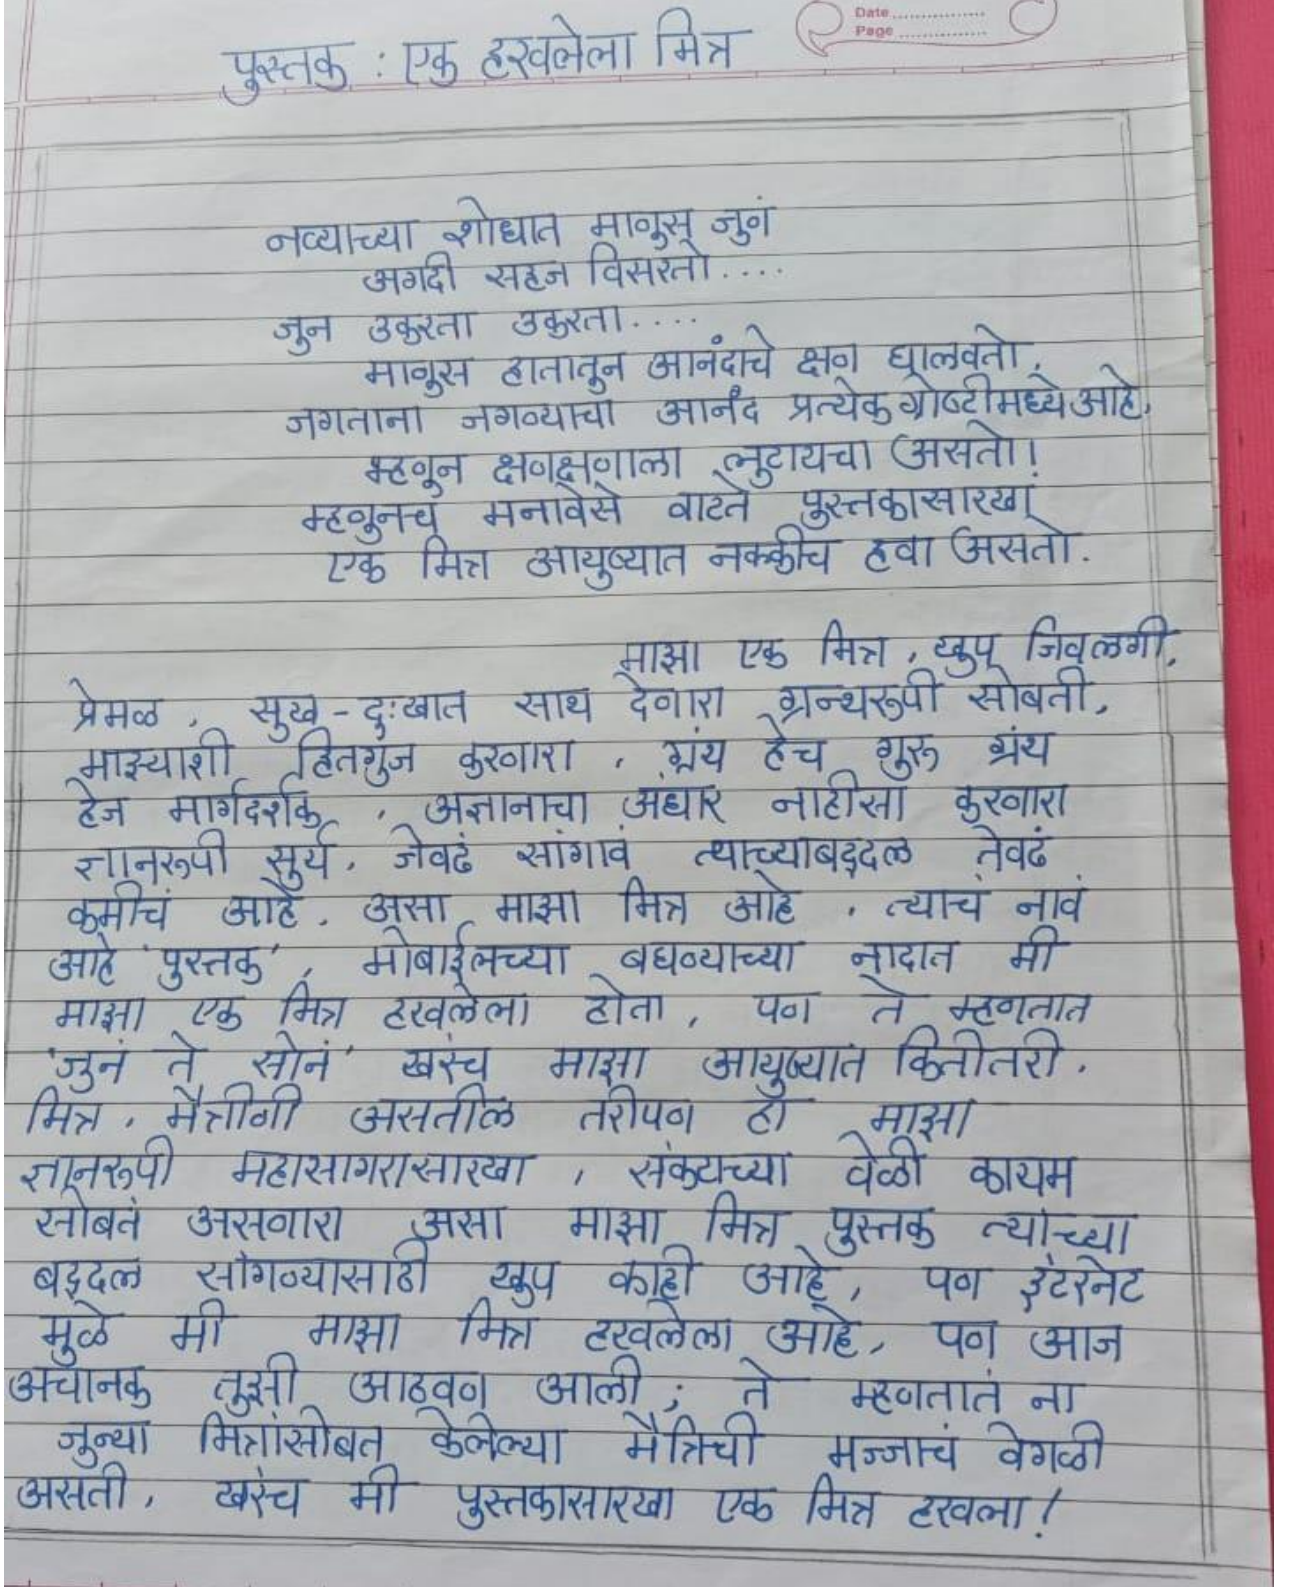 Date
Page
पुस्तक : एक हरवलेला मित्र
नव्याच्या शोधात माणूस जुनं
अगदी सहज विसरतो....
जुन उकरता उकरता....
माणूस हातातून आनंदाचे क्षण घालवतो.
जगताना जगण्याचा आनंद प्रत्येक गोष्टीमध्ये आहे,
म्हणून क्षणक्षणाला लुटायचा असतो!
म्हणूनच मनावेसे वाटते पुस्तकासारखा
एक मित्र आयुष्यात नक्कीच हवा असतो.
माझा एक मित्र, खुप जिवलगी,
प्रेमळ, सुख-दुःखात साथ देणारा ग्रन्थरूपी सोबती,
माझ्याशी हितगुज करणारा, ग्रंथ हेच गुरू ग्रंथ
हेज मार्गदर्शक, अज्ञानाचा अंधार नाहीसा करणारा
ज्ञानरूपी सुर्य. जेवढं सांगावं त्याच्याबद्दल तेवढं
कमीचं आहे. असा माझा मित्र आहे. त्याचं नावं
आहे 'पुस्तक', मोबाईलच्या बघण्याच्या नादात मी
माझा एक मित्र हरवलेला होता, पण ते म्हणतात
'जुनं ते सोनं' खरंच माझा आयुष्यात कितीतरी.
मित्र, मैत्रीणी असतील तरीपण हा माझा
ज्ञानरूपी महासागरासारखा, संकटाच्या वेळी कायम
सोबत असणारा असा माझा मित्र पुस्तक त्याच्या
बद्दल सांगण्यासाठी खुप काही आहे, पण इंटरनेट
मुळे मी माझा मित्र हरवलेला आहे, पण आज
अचानक तुझी आठवण आली; ते म्हणतात ना
जुन्या मित्रांसोबत केलेल्या मैत्रिची मज्जाचं वेगळी
असती, खरंच मी पुस्तकासारखा एक मित्र हरवला!